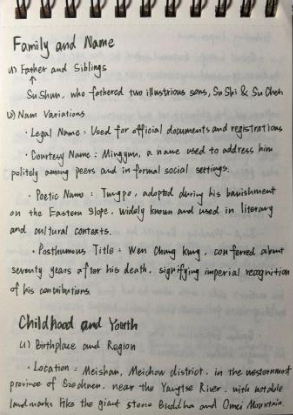 Family and Name
(1) Father and Siblings
↑
Su Shun, who fathered two illustrious sons, Su Shi & Su Cheh
(2) Nam Variations
· Legal Name: Used for official documents and registrations
· Courtesy Name: Mingyun, a name used to address him
politely among peers and in formal social settings.
· Poetic Name: Tungpo, adopted during his banishment
on the Eastern slope, widely known and used in literary
and cultural contexts.
· Posthumous Title: Wen Chung kung, conferred about
seventy years after his death, signifying imperial recognition
of his contributions.
Childhood and Youth
(1) Birthplace and Region
· Location: Meishan, Meichow district, in the westernmost
province of Szechuen, near the Yangtse River, with notable
landmarks like the giant stone Buddha and Omei Mountain.